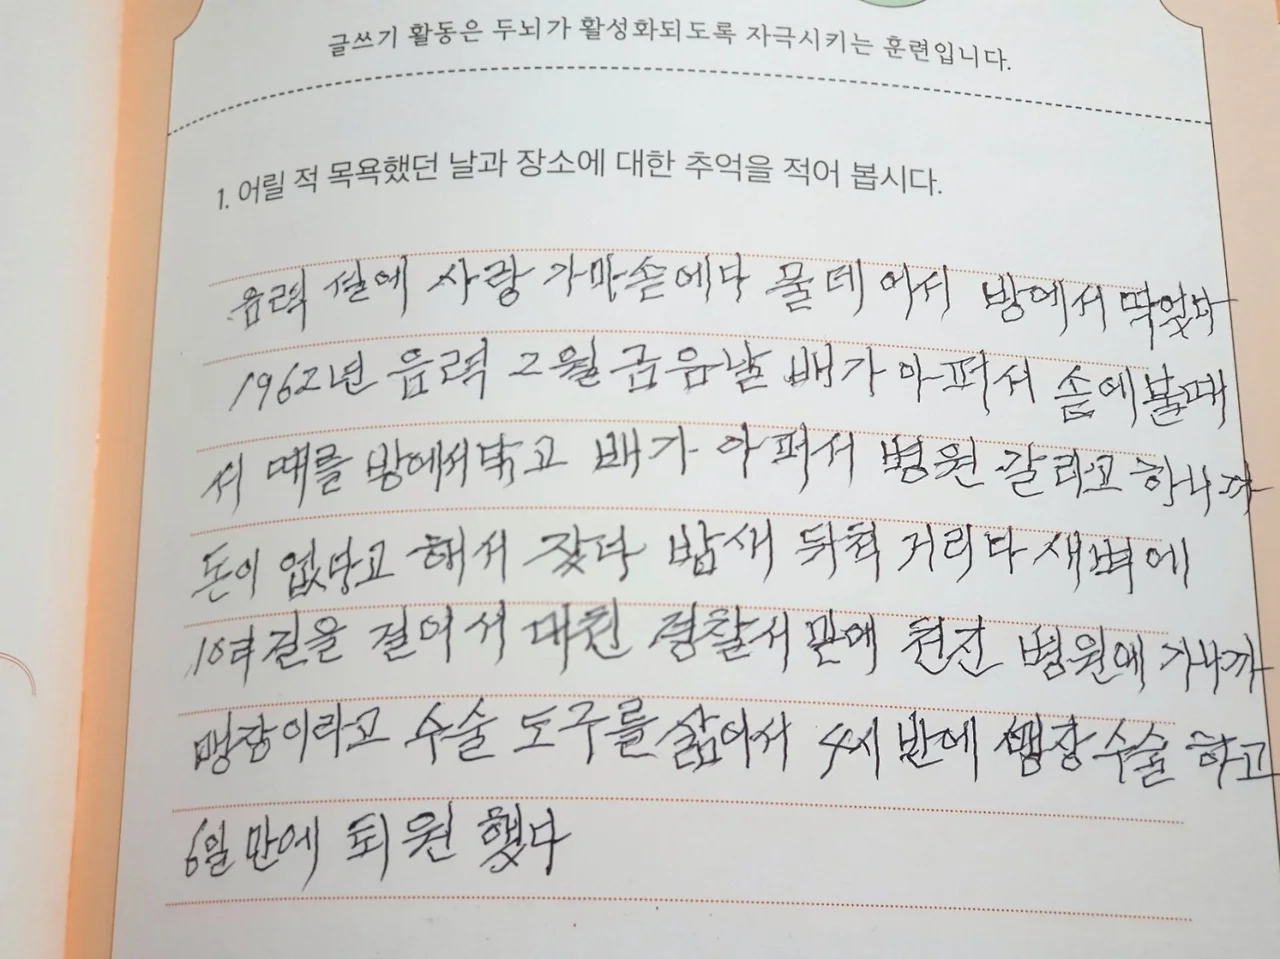 글쓰기 활동은 두뇌가 활성화되도록 자극시키는 훈련입니다.
1. 어릴 적 목욕했던 날과 장소에 대한 추억을 적어 봅시다.
음력 설에 사랑 가마솥에다 물데 어서 방에서 딱었다
1962년 음력 2월 그믐날 배가 아퍼서 솥에 불때
서 때를 방에서 닥고 배가 아퍼서 병원 갈라고 하니까
돈이 없다고 해서 잤다 밥새 뒤척 거리다 새벽에
10여 길을 걸어서 대천 경찰서 만에 천간 병원에 가니까
맹장이라고 수술 도구를 삶어서 4시 반에 맹장 수술 하고
6일 만에 퇴원 했다